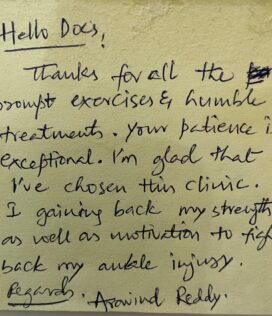 Hello Docs,
Thanks for all the
prompt exercises & humble
treatments. Your patience i
exceptional. I'm glad that
I've chosen this clinic.
I gaining back my strength
as well as motivation to figh
back my ankle injury.
Regards. Arawind Reddy.